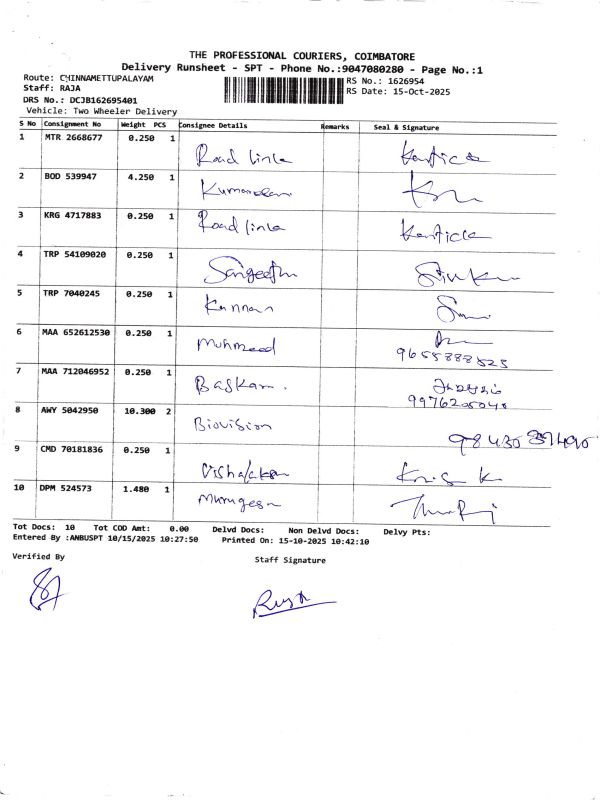 THE PROFESSIONAL COURIERS, COIMBATORE
Delivery Runsheet - SPT - Phone No.:9047080280 - Page No.:1
Route: CHINNAMETTUPALAYAM
RS No.: 1626954
Staff: RAJA
RS Date: 15-Oct-2025
DRS No.: DCJB162695401
Vehicle: Two Wheeler Delivery
S No Consignment No Weight PCS Consignee Details Remarks Seal & Signature
1 MTR 2668677 0.250 1 Road linla Kartick
2 BOD 539947 4.250 1
3 KRG 4717883 0.250 1 Road linla Kartick
4 TRP 54109020 0.250 1 Sangeetha
5 TRP 7040245 0.250 1 Kannan
6 MAA 652612530 0.250 1 Muhmeed
9655888525
7 MAA 712046952 0.250 1 Baskar.
8 AWY 5042950 10.300 2 Biovision
9 CMD 70181836 0.250 1
10 DPM 524573 1.480 1 Murugesn
Tot Docs: 10 Tot COD Amt: 0.00 Delvd Docs: Non Delvd Docs: Delvy Pts:
Entered By :ANBUSPT 10/15/2025 10:27:50 Printed On: 15-10-2025 10:42:10
Verified By
Staff Signature